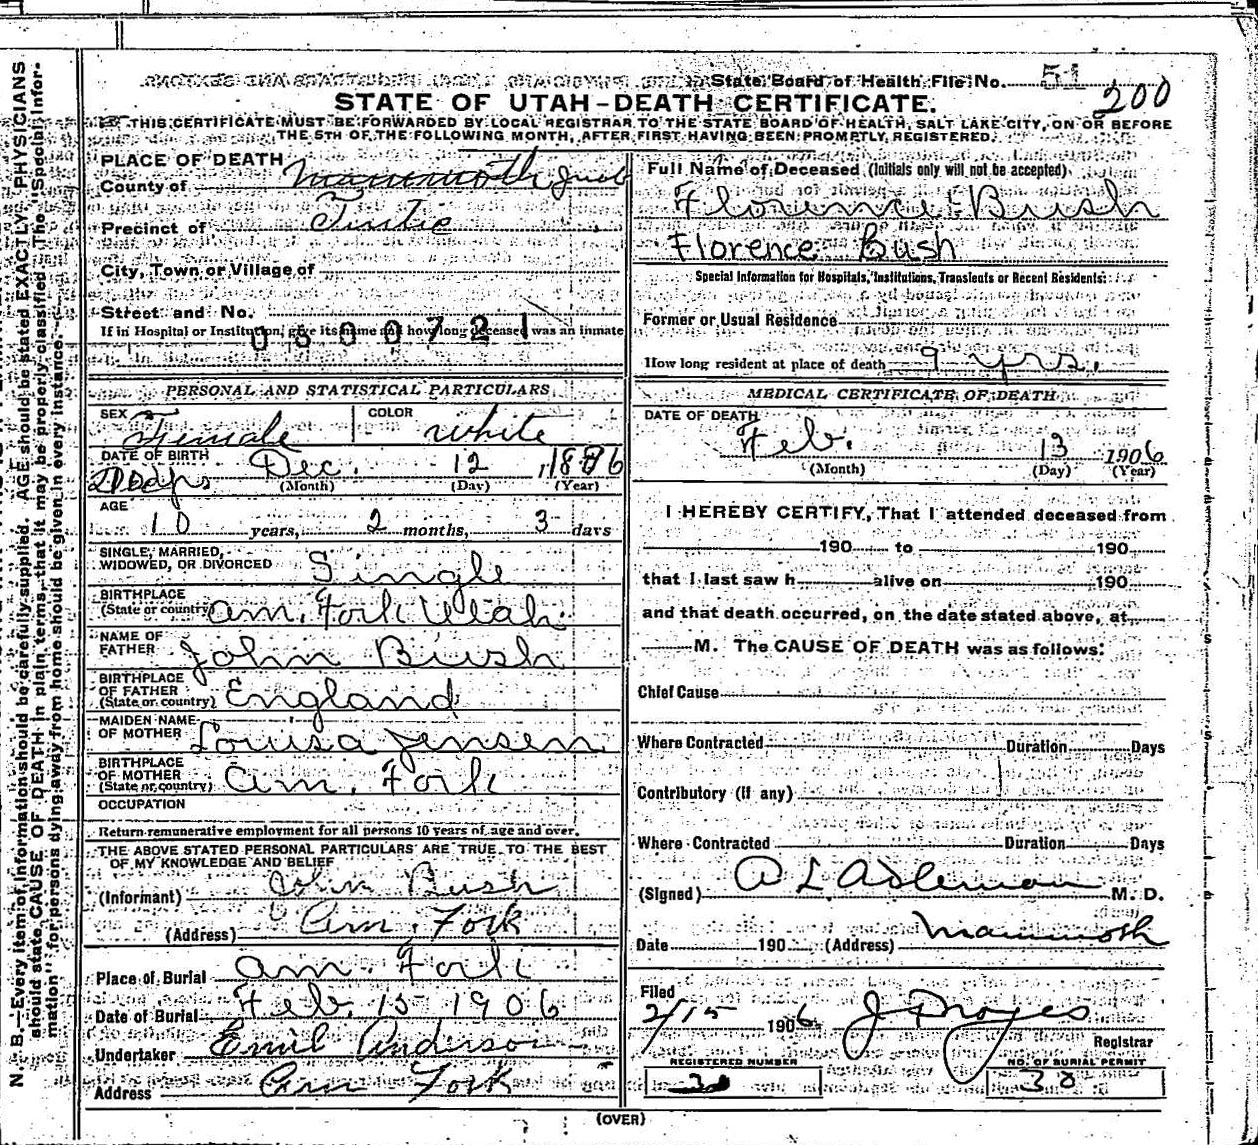 State Board of Health File No. 51
200
STATE OF UTAH—DEATH CERTIFICATE.
THIS CERTIFICATE MUST BE FORWARDED BY LOCAL REGISTRAR TO THE STATE BOARD OF HEALTH, SALT LAKE CITY, ON OR BEFORE
THE 5TH OF THE FOLLOWING MONTH, AFTER FIRST HAVING BEEN PROMPTLY REGISTERED.
N. B.—Every item of information should be carefully supplied. AGE should be stated EXACTLY. PHYSICIANS
should state CAUSE OF DEATH in plain terms, that it may be properly classified. The "Special Infor-
mation" for persons dying away from home should be given in every instance.
PLACE OF DEATH
County of Mammoth Juab
Precinct of Tintic
City, Town or Village of
Street and No.
If in Hospital or Institution, give its name and how long deceased was an inmate
0600721
PERSONAL AND STATISTICAL PARTICULARS
SEX Female COLOR White
DATE OF BIRTH Dec. 12
(Month) (Day) (Year)
AGE 10 years, 2 months, 3 days
SINGLE, MARRIED,
WIDOWED, OR DIVORCED Single
BIRTHPLACE
(State or country) Am. Fork Utah
NAME OF
FATHER John Bush
BIRTHPLACE
OF FATHER
(State or country) England
MAIDEN NAME
OF MOTHER Louisa Jensen
BIRTHPLACE
OF MOTHER
(State or country) Am. Fork
OCCUPATION
Return remunerative employment for all persons 10 years of age and over.
THE ABOVE STATED PERSONAL PARTICULARS ARE TRUE TO THE BEST
OF MY KNOWLEDGE AND BELIEF
(Informant) John Bush
(Address) Am. Fork
Place of Burial Am. Fork
Date of Burial Feb. 15 1906
Undertaker Emil Anderson
Address Am Fork
Full Name of Deceased (Initials only will not be accepted)
Florence Bush
Florence Bush
Special Information for Hospitals, Institutions, Transients or Recent Residents:
Former or Usual Residence
How long resident at place of death 9 yrs.
MEDICAL CERTIFICATE OF DEATH
DATE OF DEATH
Feb. 13 1906
(Month) (Day) (Year)
I HEREBY CERTIFY, That I attended deceased from
190 to 190
that I last saw h alive on 190
and that death occurred, on the date stated above, at
M. The CAUSE OF DEATH was as follows:
Chief Cause
Where Contracted Duration Days
Contributory (if any)
Where Contracted Duration Days
(Signed) A L Adleman M. D.
Date 190 (Address) Mammoth
Filed
2/15 1906 J P Noyes
Registrar
REGISTERED NUMBER NO. OF BURIAL PERMIT
38
(OVER)